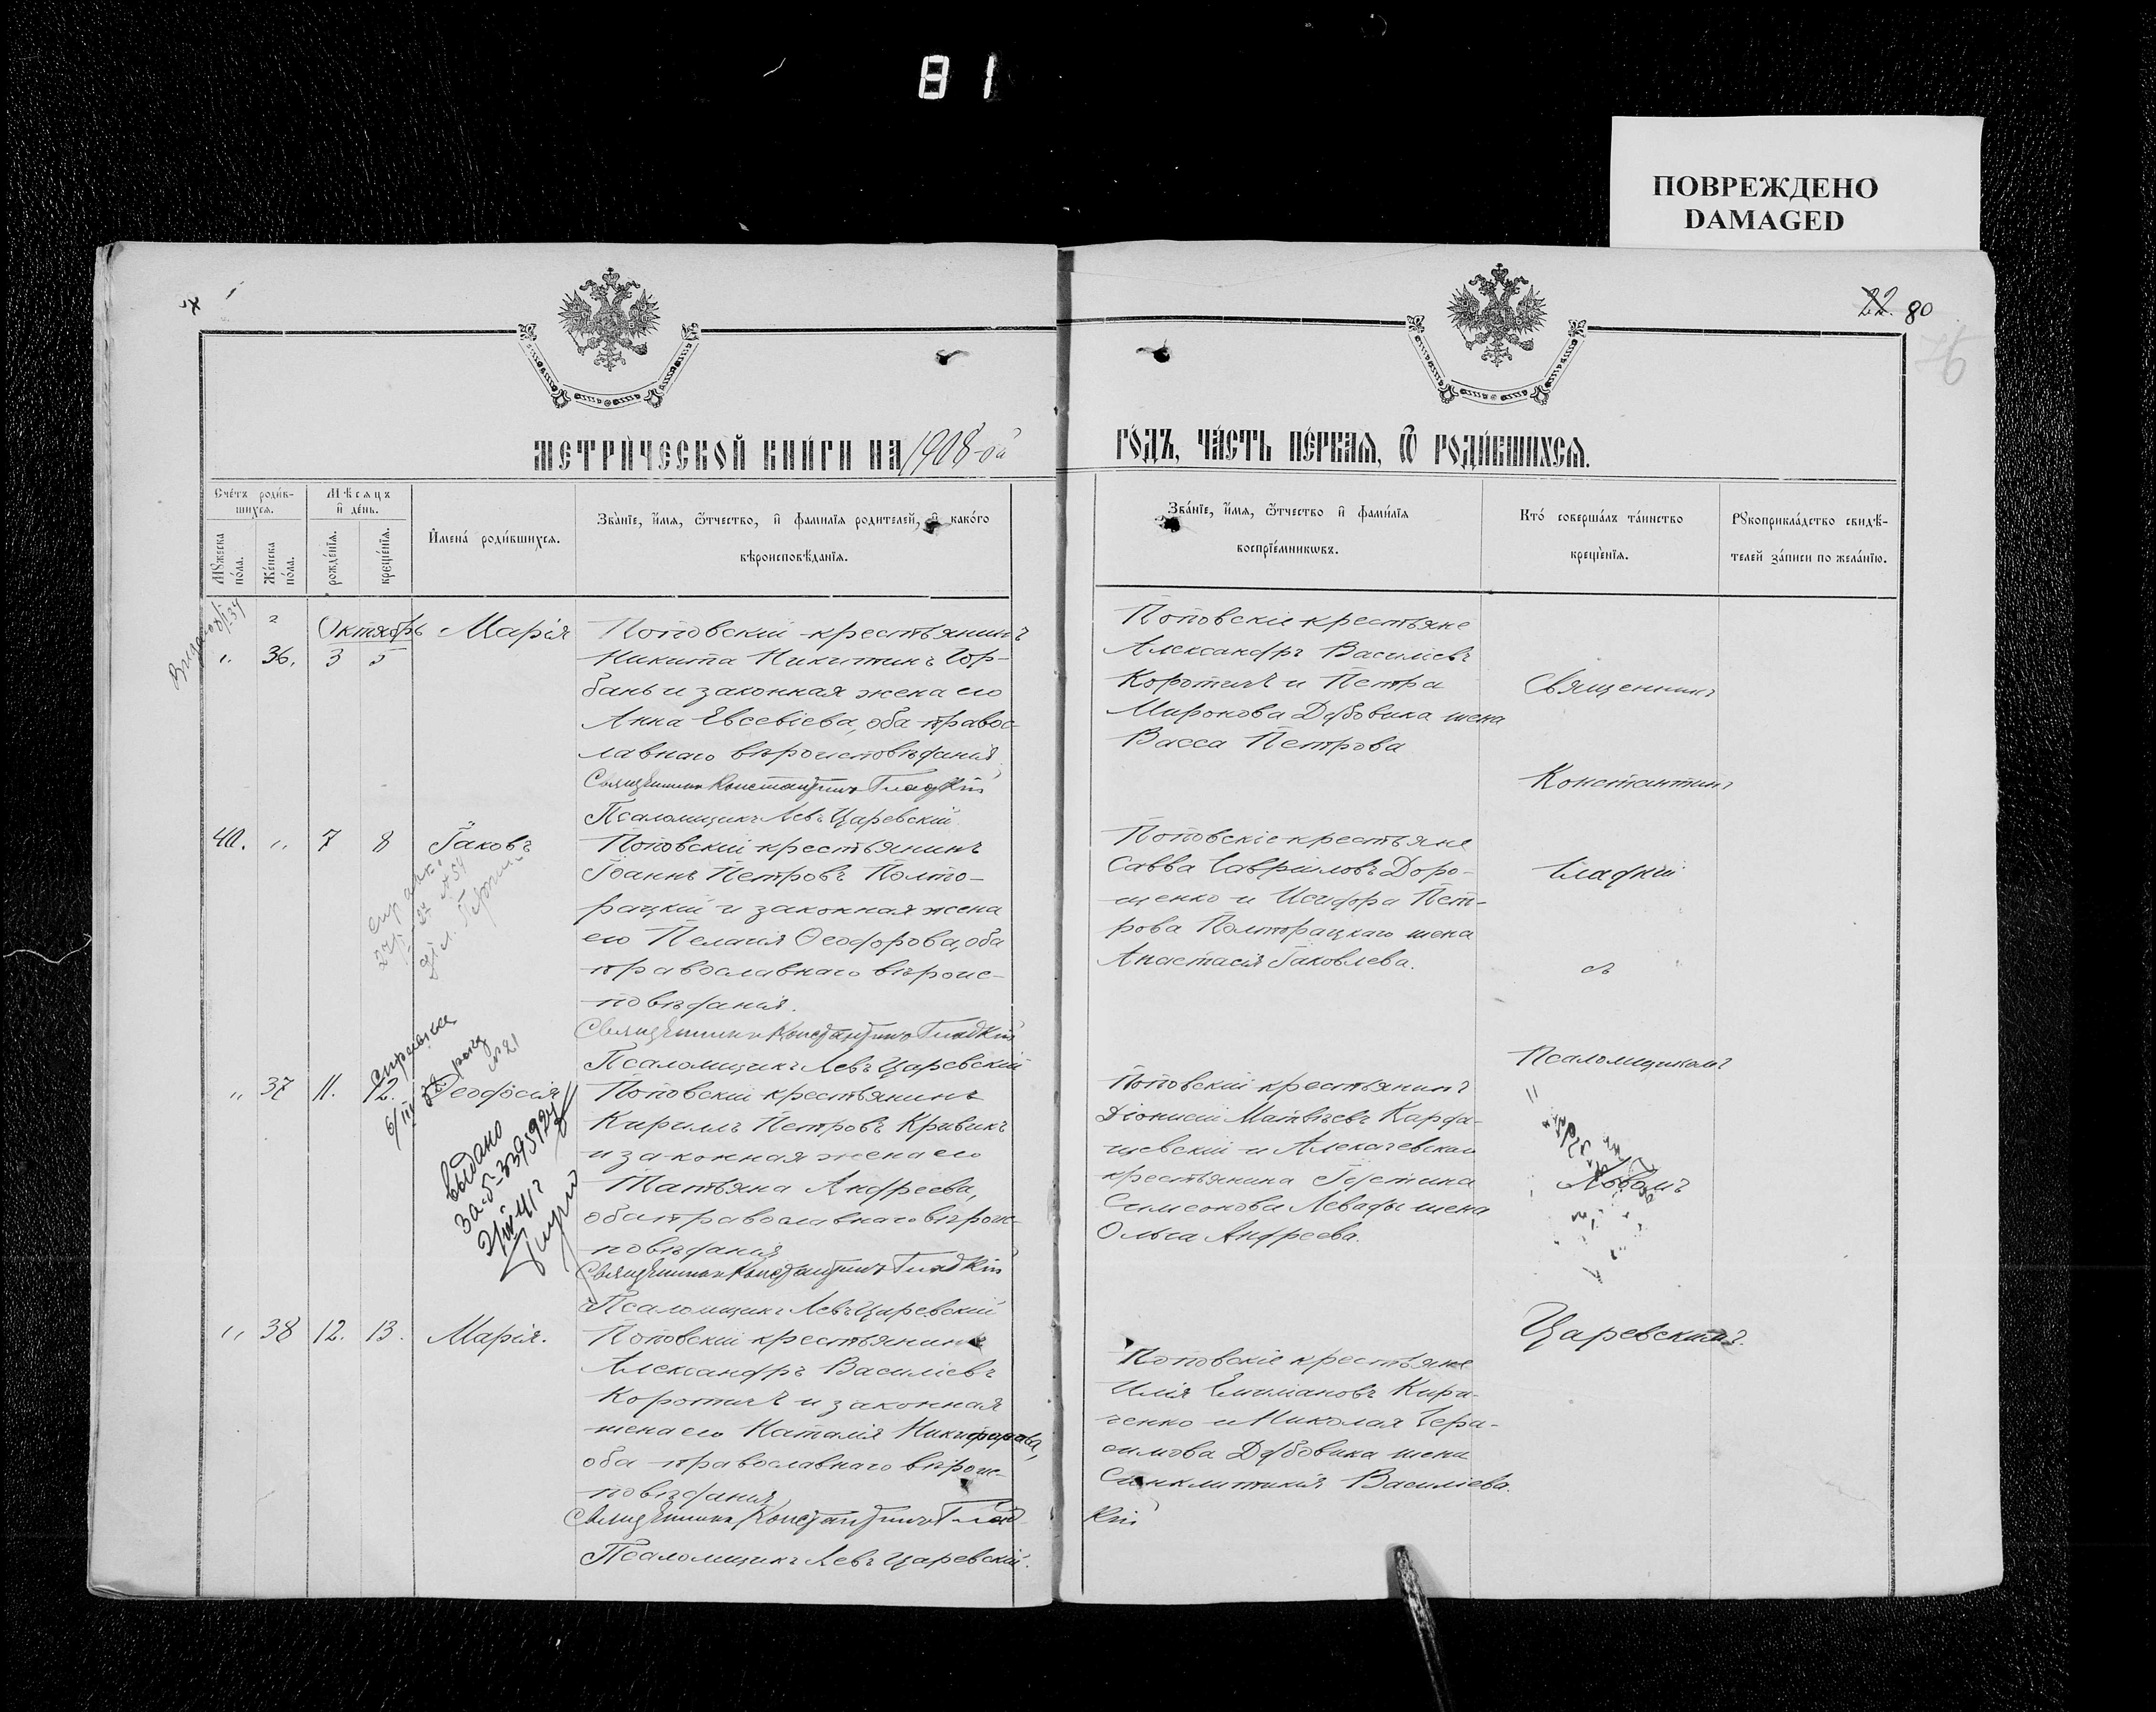 81
ПОВРЕЖДЕНО
DAMAGED
22. 80
76
МЕТРИ́ЧЕСКОЙ КНИ́ГИ НА 1908-ой
ГО́ДЪ, ЧА́СТЬ ПЕ́РВАЯ, Ѿ РОДИ́ВШИХСЯ.
Сче́тъ роди́в-
шихся.
Мѣ́сяцъ
и҆ де́нь.
Мꙋ́жеска
по́ла.
Же́нска
по́ла.
рожде́нїя.
креще́нїя.
И҆мена̀ роди́вшихся.
Зва́нїе, и҆́мя, ѻ҆́тчество, и҆ фами́лїя роди́телей, и҆ како́го
вѣроисповѣ́данїя.
Зва́нїе, и҆́мя, ѻ҆́тчество и҆ фами́лїя
воспрїе́мникѡвъ.
Кто̀ соверша́лъ та́инство
креще́нїя.
Рꙋкоприкла́дство свидѣ́-
телей за́писи по жела́нїю.
Октябрь
" 36. 3 5 Марія
Поповскій крестьянинъ
Никита Никитинъ Гор-
бань и законная жена его
Анна Евсевіева, оба правос-
лавнаго вѣроисповѣданія
Священникъ Константинъ Гладкій
Псаломщикъ Левъ Царевскій
Поповскіе крестьяне
Александръ Василіевъ
Коротичъ и Петра
Миронова Дубовика жена
Васса Петрова
40. " 7 8 Іаковъ
Поповскій крестьянинъ
Іоаннъ Петровъ Полто-
рацкій и законная жена
его Пелагія Ѳеодорова, оба
православнаго вѣроис-
повѣданія.
Священникъ Константинъ Гладкій
Псаломщикъ Левъ Царевскій
Поповскіе крестьяне
Савва Гавріиловъ Доро-
щенко и Исидора Пет-
рова Полторацкаго жена
Анастасія Іаковлева.
справка
6/III 32 року
№ 21
" 37 11. 12. Ѳеодосія
выдано
Поповскій крестьянинъ
Кириллъ Петровъ Кривикъ
и законная жена его
Татьяна Андреева,
оба православнаго вѣроис-
повѣданія
Священникъ Константинъ Гладкій
Псаломщикъ Левъ Царевскій
Поповскій крестьянинъ
Діонисій Матвѣевъ Карда-
шевскій и Алексѣевскаго
крестьянина Іустина
Симеонова Левады жена
Ольга Андреева.
" 38 12. 13. Марія.
Поповскій крестьянинъ
Александръ Василіевъ
Коротичъ и законная
жена его Наталія Никифорова,
оба православнаго вѣроис-
повѣданія
Священникъ Константинъ Глад-
кій
Псаломщикъ Левъ Царевскій.
Поповскіе крестьяне
Илія Емиліановъ Кири-
ченко и Николая Гера-
симова Дубовика жена
Синклитикія Василіева.
Священникъ
Константинъ
Гладкій
съ
Псаломщикомъ
Львомъ
Царевскимъ.